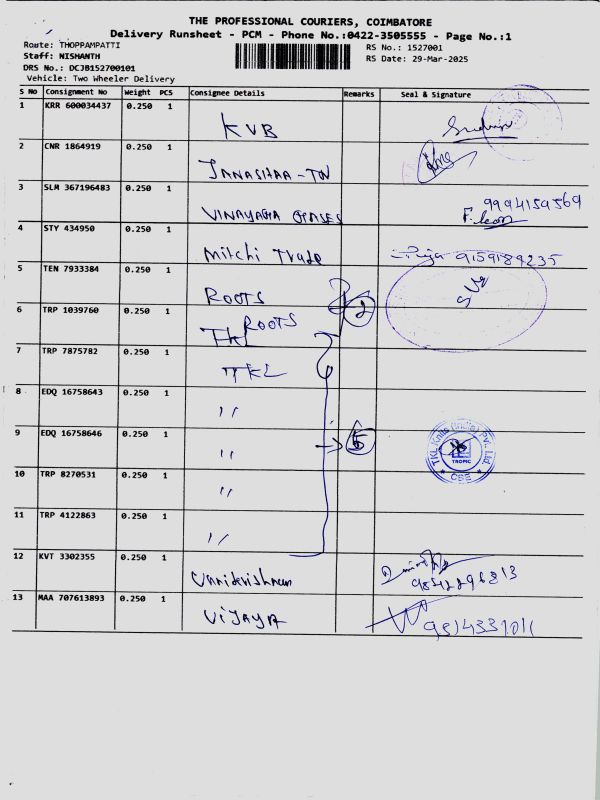 THE PROFESSIONAL COURIERS, COIMBATORE
Delivery Runsheet - PCM - Phone No.:0422-3505555 - Page No.:1
Route: THOPPAMPATTI
RS No.: 1527001
Staff: NISHANTH
RS Date: 29-Mar-2025
DRS No.: DCJB152700101
Vehicle: Two Wheeler Delivery
S No Consignment No Weight PCS Consignee Details Remarks Seal & Signature
1 KRR 600034437 0.250 1 KVB
2 CNR 1864919 0.250 1 JANASHAA-TN
3 SLM 367196483 0.250 1 VINAYAGA GASES 9994159569
4 STY 434950 0.250 1 Mitchi Trade 9159189235
5 TEN 7933384 0.250 1 ROOTS 2
6 TRP 1039760 0.250 1 ROOTS
7 TRP 7875782 0.250 1 TKL
8 EDQ 16758643 0.250 1 "
9 EDQ 16758646 0.250 1 " 5 TKL Knits (India) Pvt. Ltd. TROPIC CBE
10 TRP 8270531 0.250 1 "
11 TRP 4122863 0.250 1 "
12 KVT 3302355 0.250 1 Unnikrishnan 9842296813
13 MAA 707613893 0.250 1 VIJAYA